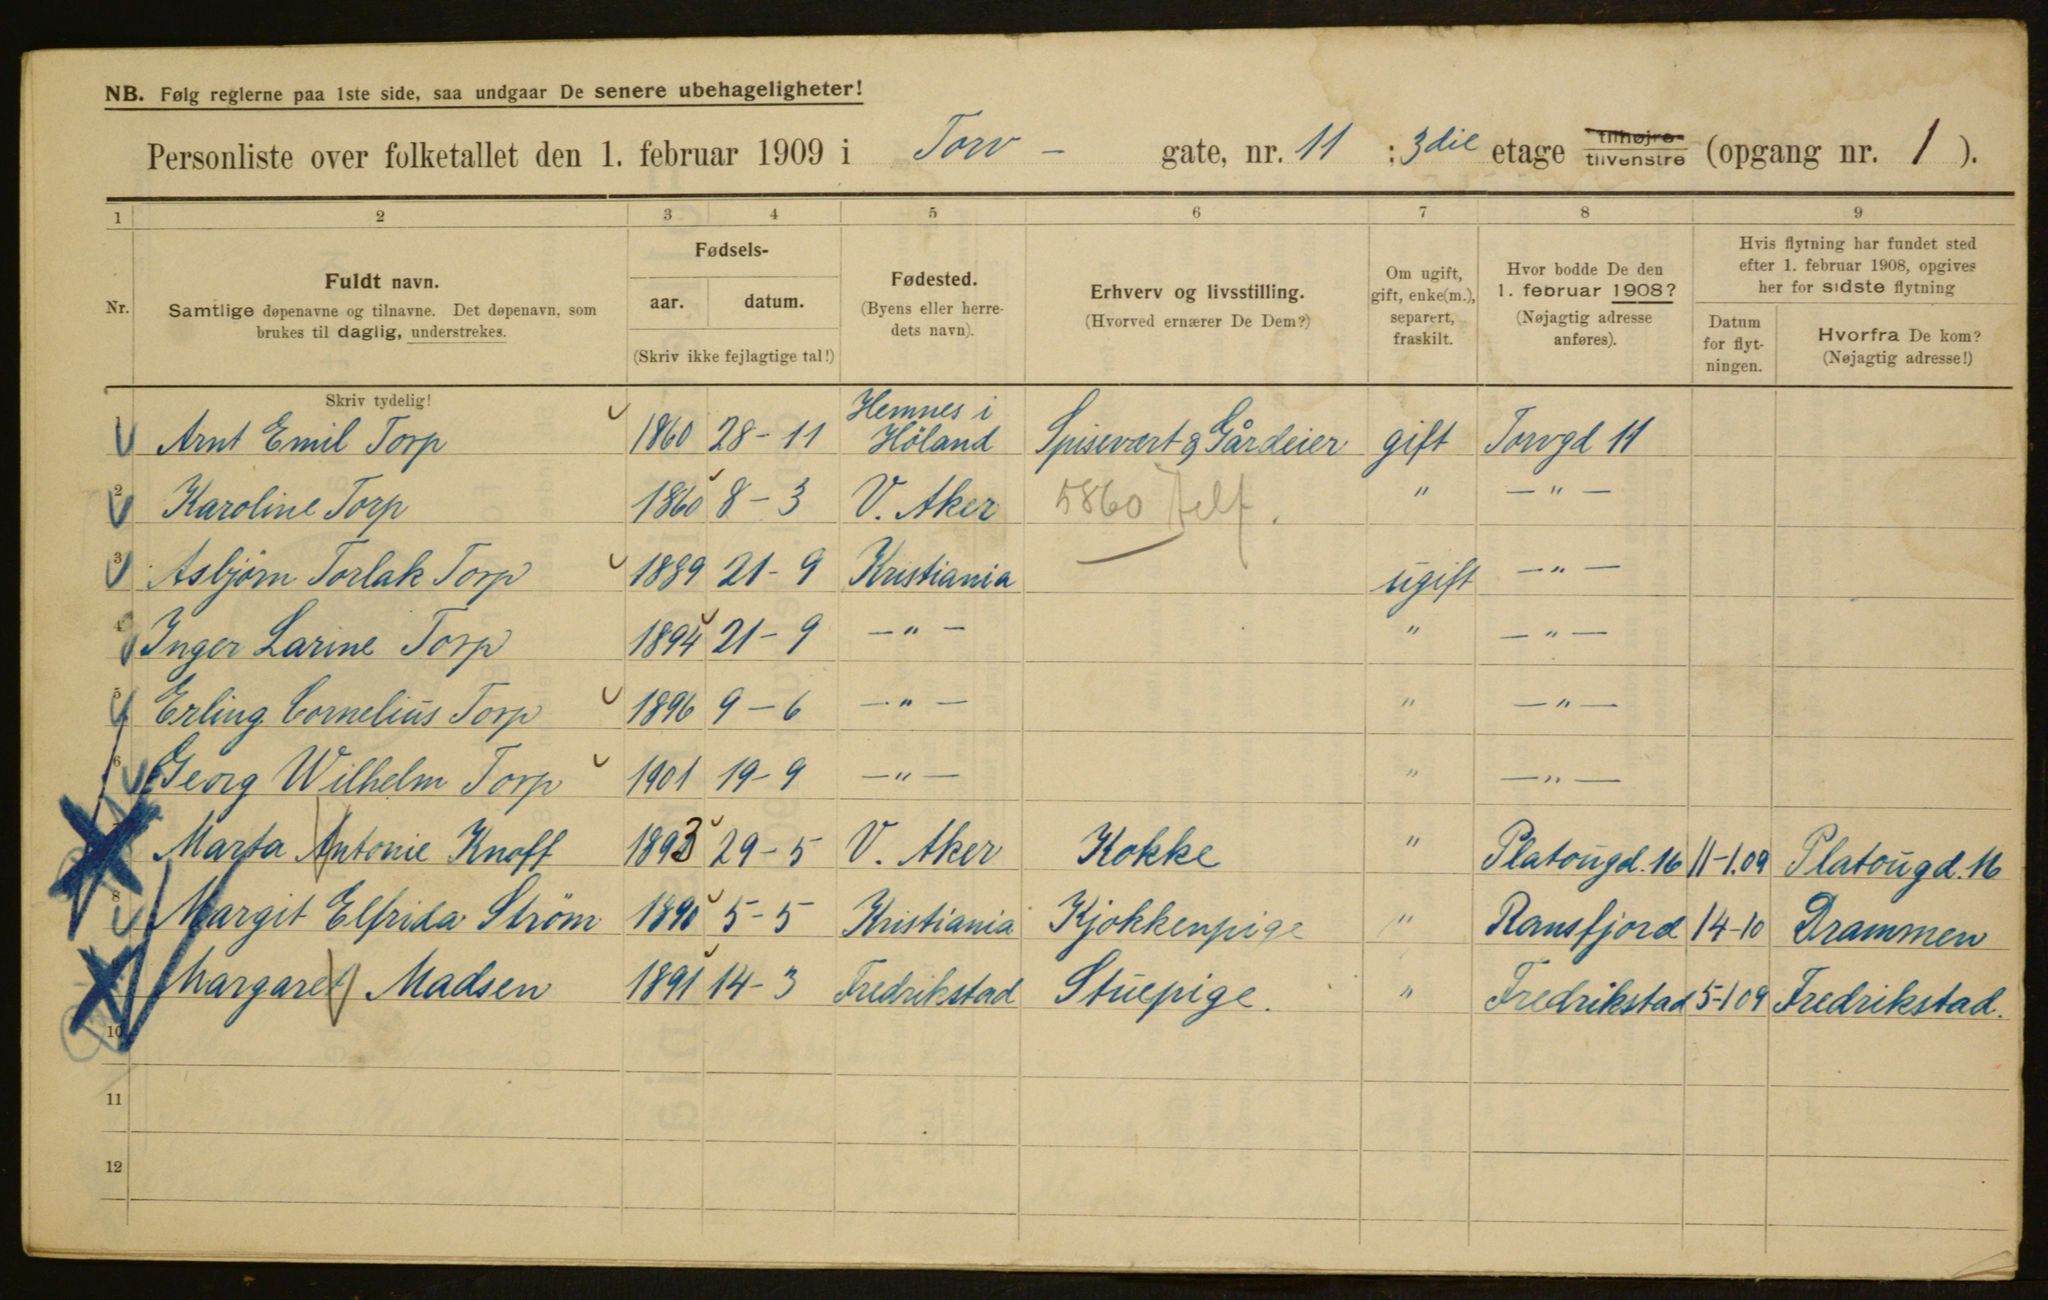 NB. Følg reglerne paa 1ste side, saa undgaar De senere ubehageligheter!
Personliste over folketallet den 1. februar 1909 i Torv - gate, nr. 11 ; 3die etage tilhøjre tilvenstre (opgang nr. 1 ).
1 2 3 4 5 6 7 8 9
Nr.
Fuldt navn.
Samtlige døpenavne og tilnavne. Det døpenavn, som
brukes til daglig, understrekes.
Fødsels-
aar. datum.
(Skriv ikke fejlagtige tal!)
Fødested.
(Byens eller herre-
dets navn).
Erhverv og livsstilling.
(Hvorved ernærer De Dem?)
Om ugift,
gift, enke(m.),
separert,
fraskilt.
Hvor bodde De den
1. februar 1908?
(Nøjagtig adresse
anføres).
Hvis flytning har fundet sted
efter 1. februar 1908, opgives
her for sidste flytning
Datum
for flyt-
ningen.
Hvorfra De kom?
(Nøjagtig adresse!)
Skriv tydelig!
1 Arnt Emil Torp 1860 28-11 Hemnes i Höland Spisevært & Gårdeier gift Torvgd 11
2 Karoline Torp 1860 8-3 V. Aker 5860 Telf. " —"—
3 Asbjørn Torlak Torp 1889 21-9 Kristiania ugift —"—
4 Inger Larine Torp 1894 21-9 —"— " —"—
5 Erling Cornelius Torp 1896 9-6 —"— " —"—
6 Georg Wilhelm Torp 1901 19-9 —"— " —"—
Marta Antonie Knoff 1893 29-5 V. Aker Kokke " Platougd. 16 11-1.09 Platougd. 16
8 Margit Elfrida Strøm 1890 5-5 Kristiania Kjøkkenpige " Ransfjord 14-10 Drammen
Margaret Madsen 1891 14-3 Fredrikstad Stuepige. " Fredrikstad 5-1 09 Fredrikstad.
10
11
12